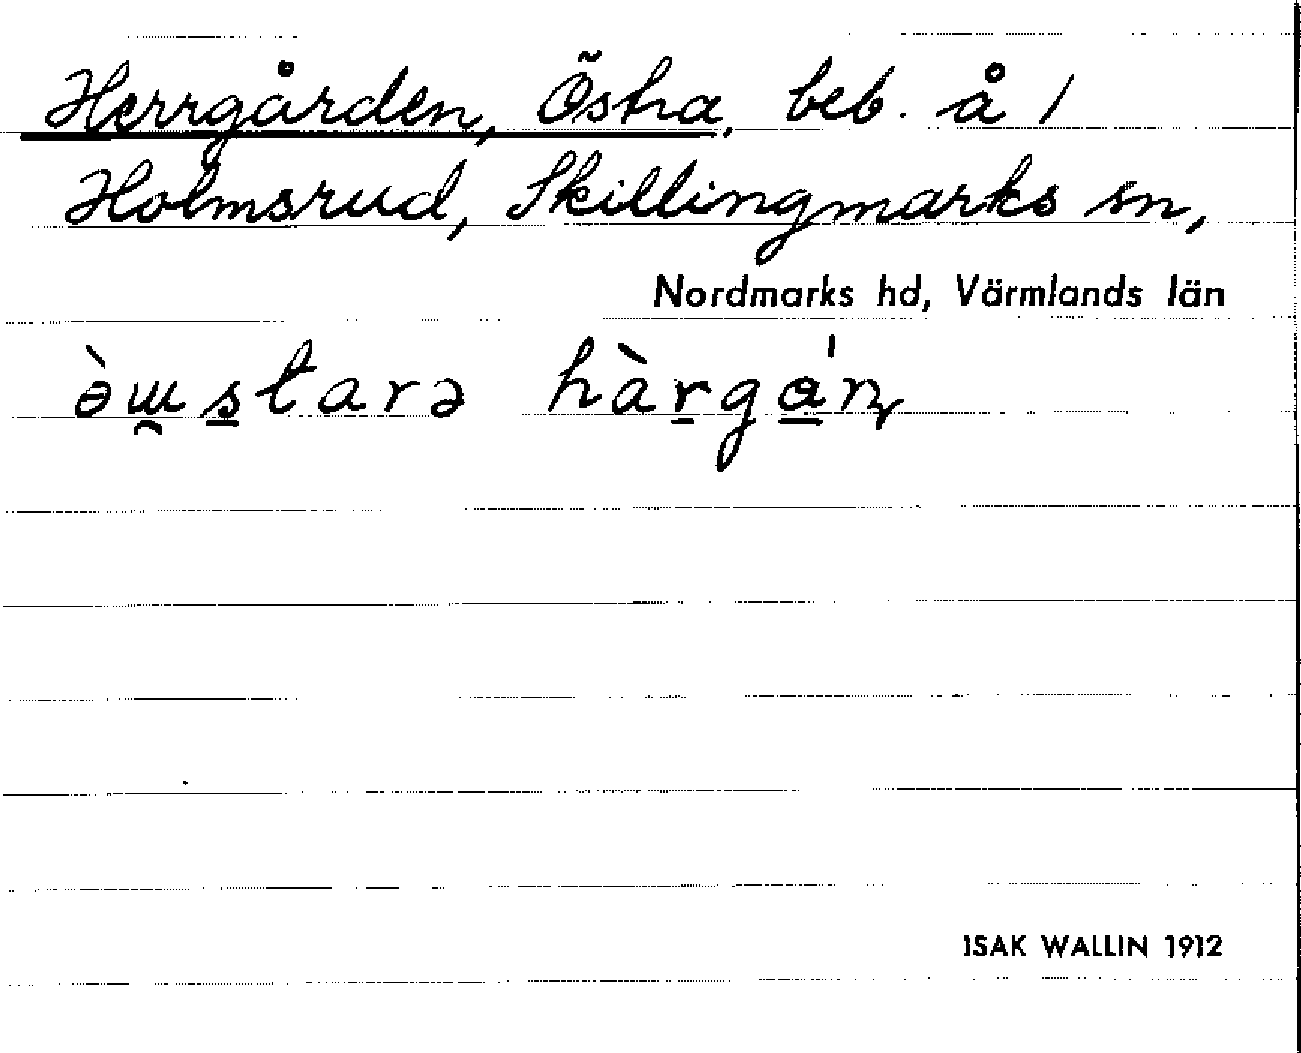 Herrgården, Östra, beb. å 1
Holmsrud, Skillingmarks sn,
Nordmarks hd, Värmlands län
ə̀ɯ̯s̲tarə hàr̲gά̲ɳ
ISAK WALLIN 1912